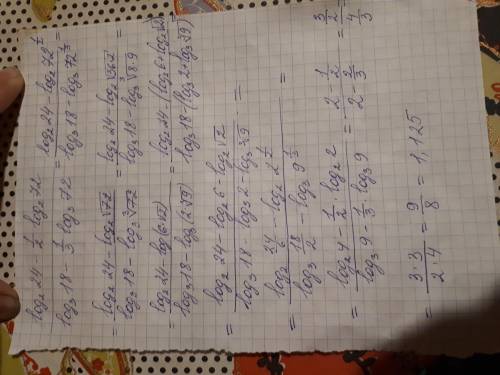 (log₂ 24 - 1/2 log₂ 72) / (log₃ 18 - 1/3 log₃ 72) = (log₂ 24 - log₂ 72^(1/2)) / (log₃ 18 - log₃ 72^(1/3)) =
= (log₂ 24 - log₂ √72) / (log₃ 18 - log₃ ∛72) = (log₂ 24 - log₂ √36·2) / (log₃ 18 - log₃ ∛8·9) =
= (log₂ 24 - log(6√2)) / (log₃ 18 - log₃ (2·∛9)) = (log₂ 24 - (log₂ 6 + log₂ √2)) / (log₃ 18 - (log₃ 2 + log₃ ∛9)) =
= (log₂ 24 - log₂ 6 - log₂ √2) / (log₃ 18 - log₃ 2 - log₃ ∛9) =
= (log₂ 24/6 - log₂ 2^(1/2)) / (log₃ 18/2 - log₃ 9^(1/3)) =
= (log₂ 4 - 1/2 · log₂ 2) / (log₃ 9 - 1/3 · log₃ 9) = (2 - 1/2) / (2 - 2/3) = (3/2) / (4/3) =
= (3·3) / (2·4) = 9/8 = 1,125